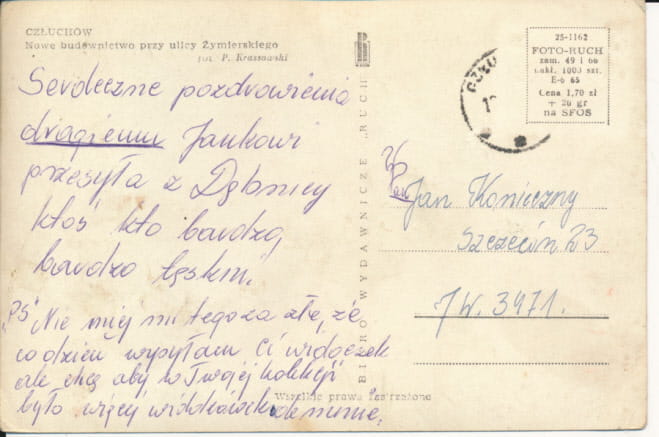 CZŁUCHÓW
Nowe budownictwo przy ulicy Żymierskiego
fot. P. Krassowski
Serdeczne pozdrowienia
drogiemu Jankowi
przesyła z Dębnicy
ktoś kto bardzo,
bardzo tęskni.
"PS" Nie miej mi tego za złe, że
co dzień wysyłam Ci widoczek
ale chcę aby w Twojej kolekcji
było więcej widokówek ode mnie.
BIURO WYDAWNICZE „RUCH"
Wszelkie prawa zastrzeżone
25-1162
FOTO-RUCH
zam. 49 i 66
nakł. 1000 szt.
E-6 65
Cena 1,70 zł
+ 20 gr
na SFOS
CZŁU
WPan
Jan Konieczny
Szczecin 23
JW. 3471.